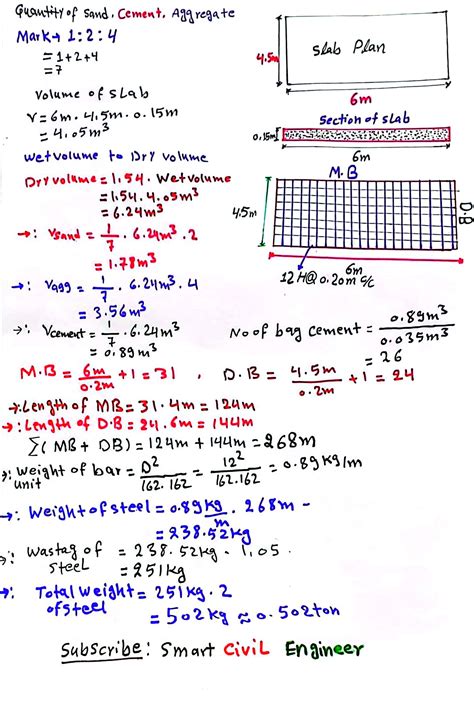 Quantity of Sand, Cement, Aggregate
Mark→ 1:2:4
= 1+2+4
= 7
Volume of Slab
V = 6m · 4,5m · 0.15m
= 4,05m³
Wet volume to Dry volume
Dry volume = 1.54 · Wet volume
= 1.54 · 4.05m³
= 6.24m³
→: Vsand = 1/7 · 6.24m³ · 2
= 1.78m³
→: Vagg = 1/7 · 6.24m³ · 4
= 3.56m³
→: Vcement = 1/7 · 6.24m³
= 0.89m³
4.5m
Slab Plan
6m
Section of slab
0.15m
6m
M.B
4,5m
D.B
6m
12H@0.20m c/c
No of bag cement = 0.89m³/0.035m³
= 26
M.B = 6m/0.2m +1 = 31 , D.B = 4.5m/0.2m +1 = 24
→: Length of MB = 31 · 4m = 124m
→: Length of D.B = 24 . 6m = 144m
∑( MB + DB) = 124m + 144m = 268m
→: Weight of bar unit = D²/162.162 = 12²/162.162 = 0.89 kg/m
→: Weight of steel = 0.89 kg/m · 268m -
= 238.52kg
→: Wastag of steel = 238.52kg · 1,05.
= 251kg
→: Total weight of steel = 251kg · 2
= 502kg ≈ 0.502ton
Subscribe: Smart Civil Engineer